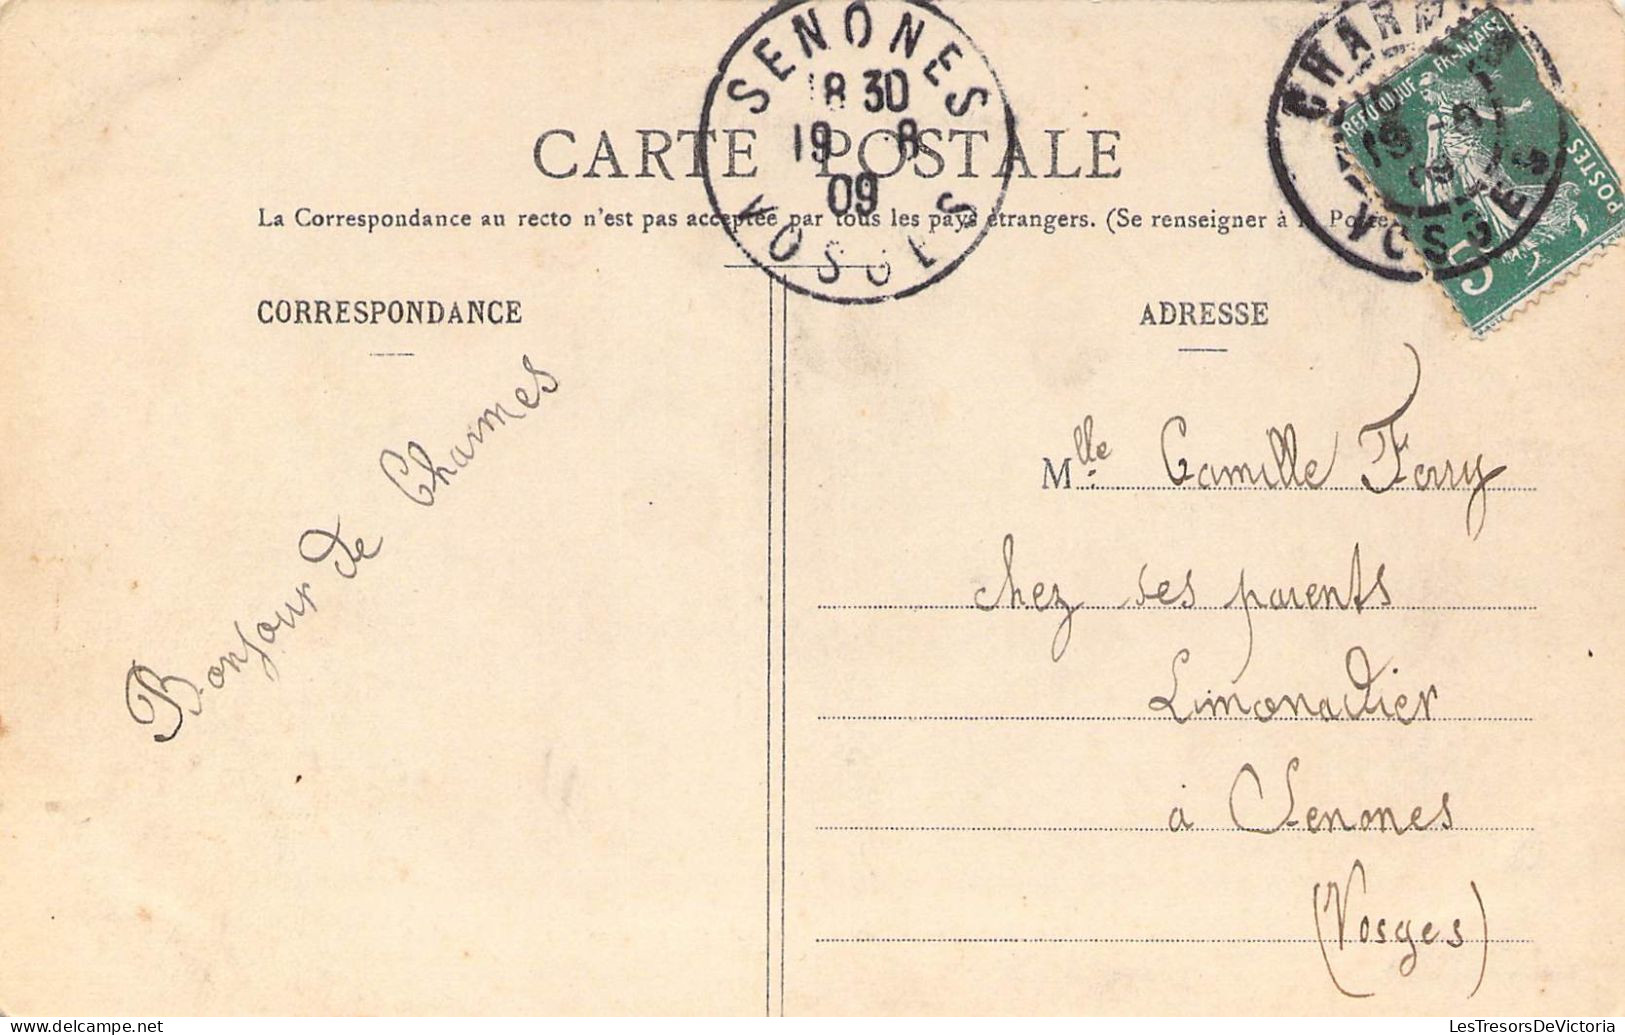 SENONES
18 30
19 8
09
VOSGES
RÉPUBLIQUE FRANÇAISE
POSTES
5
VOSGES
CARTE POSTALE
La Correspondance au recto n'est pas acceptée par tous les pays étrangers. (Se renseigner à la Poste)
CORRESPONDANCE
ADRESSE
Bonjour de Charmes
Mlle Camille Ferry
chez ses parents
Limonadier
à Senones
(Vosges)
LesTresorsDeVictoria
www.delcampe.net